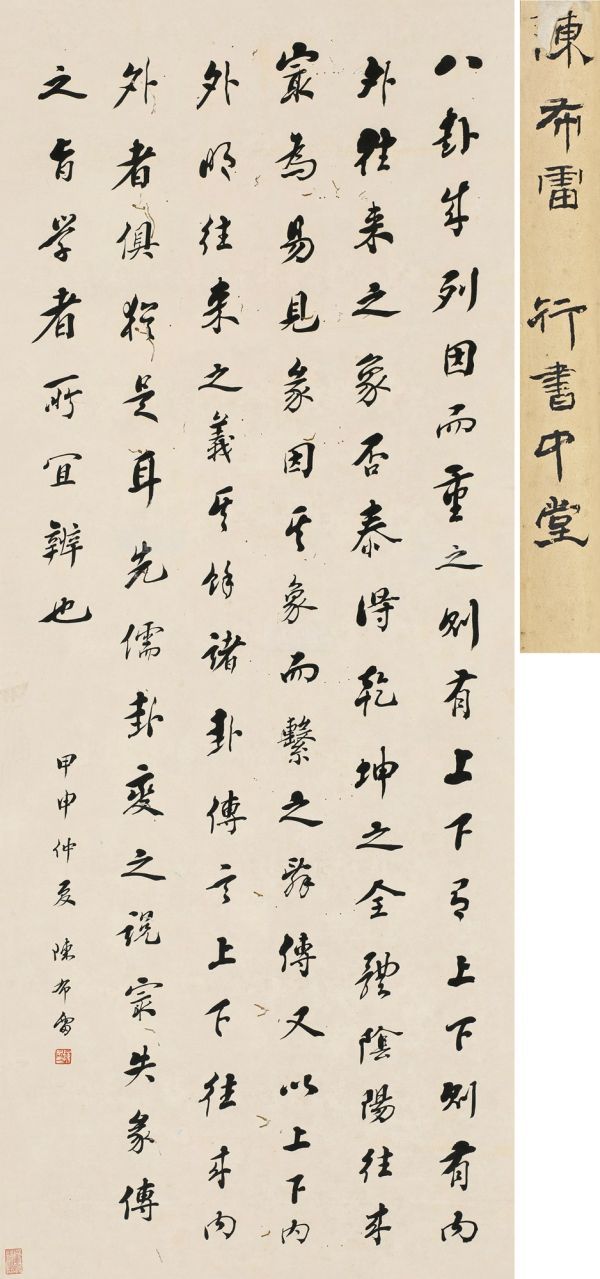 八卦成列因而重之則有上下有上下則有内
外往來之象否泰得乾坤之全體陰陽往来
最為易見象因其象而繫之辞傳又以上下内
外明往来之義其餘諸卦傳言上下往来内
外者俱猶是耳先儒卦變之説最失象傳
之旨学者所宜辨也
甲申仲夏 陳布雷
陳布雷 行書中堂